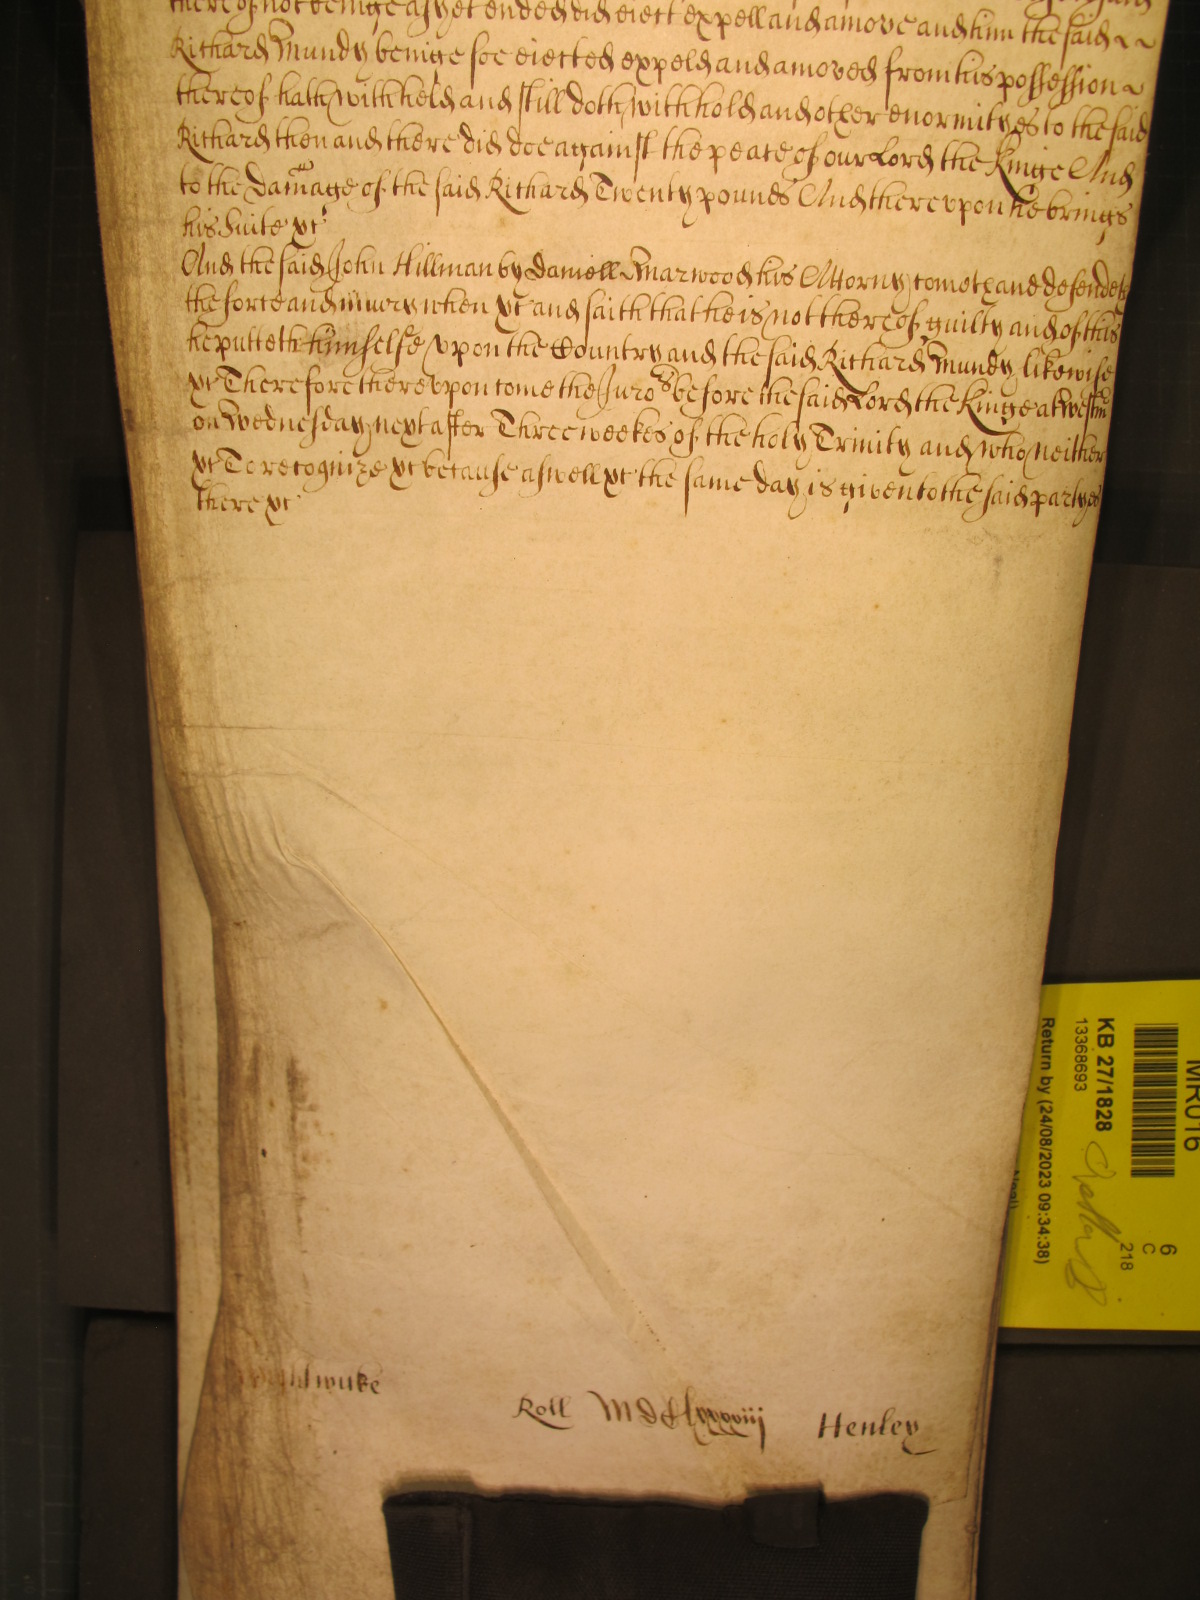 thereof not beinge as yet ended did eiect expell and amove and him the said
Richard Mundy beinge soe eiected expeld and amoved from his possession
thereof hath withheld and still doth withhold and other enormityes to the said
Richard then and there did doe against the peace of our Lord the Kinge And
to the damage of the said Richard Twenty pounds And thereupon he brings
his suite &c
And the said John Hillman by Daniell Marwood his Attorny cometh and defendeth
the force and iniury when &c and saith that he is not thereof guilty and of this
he putteth himselfe upon the Country and the said Richard Mundy likewise
&c Therefore thereupon come the Juro:rs before the said Lord the Kinge at Westm
on Wednesday next after Three weekes of the holy Trinity and who neither
&c To recognize &c because aswell &c the same day is given to the said partyes
there &c
Roll MDClxxxviij Henley
MR016
KB 27/1828
13368693
Return by (24/08/2023 09:34:38)
6
C
218